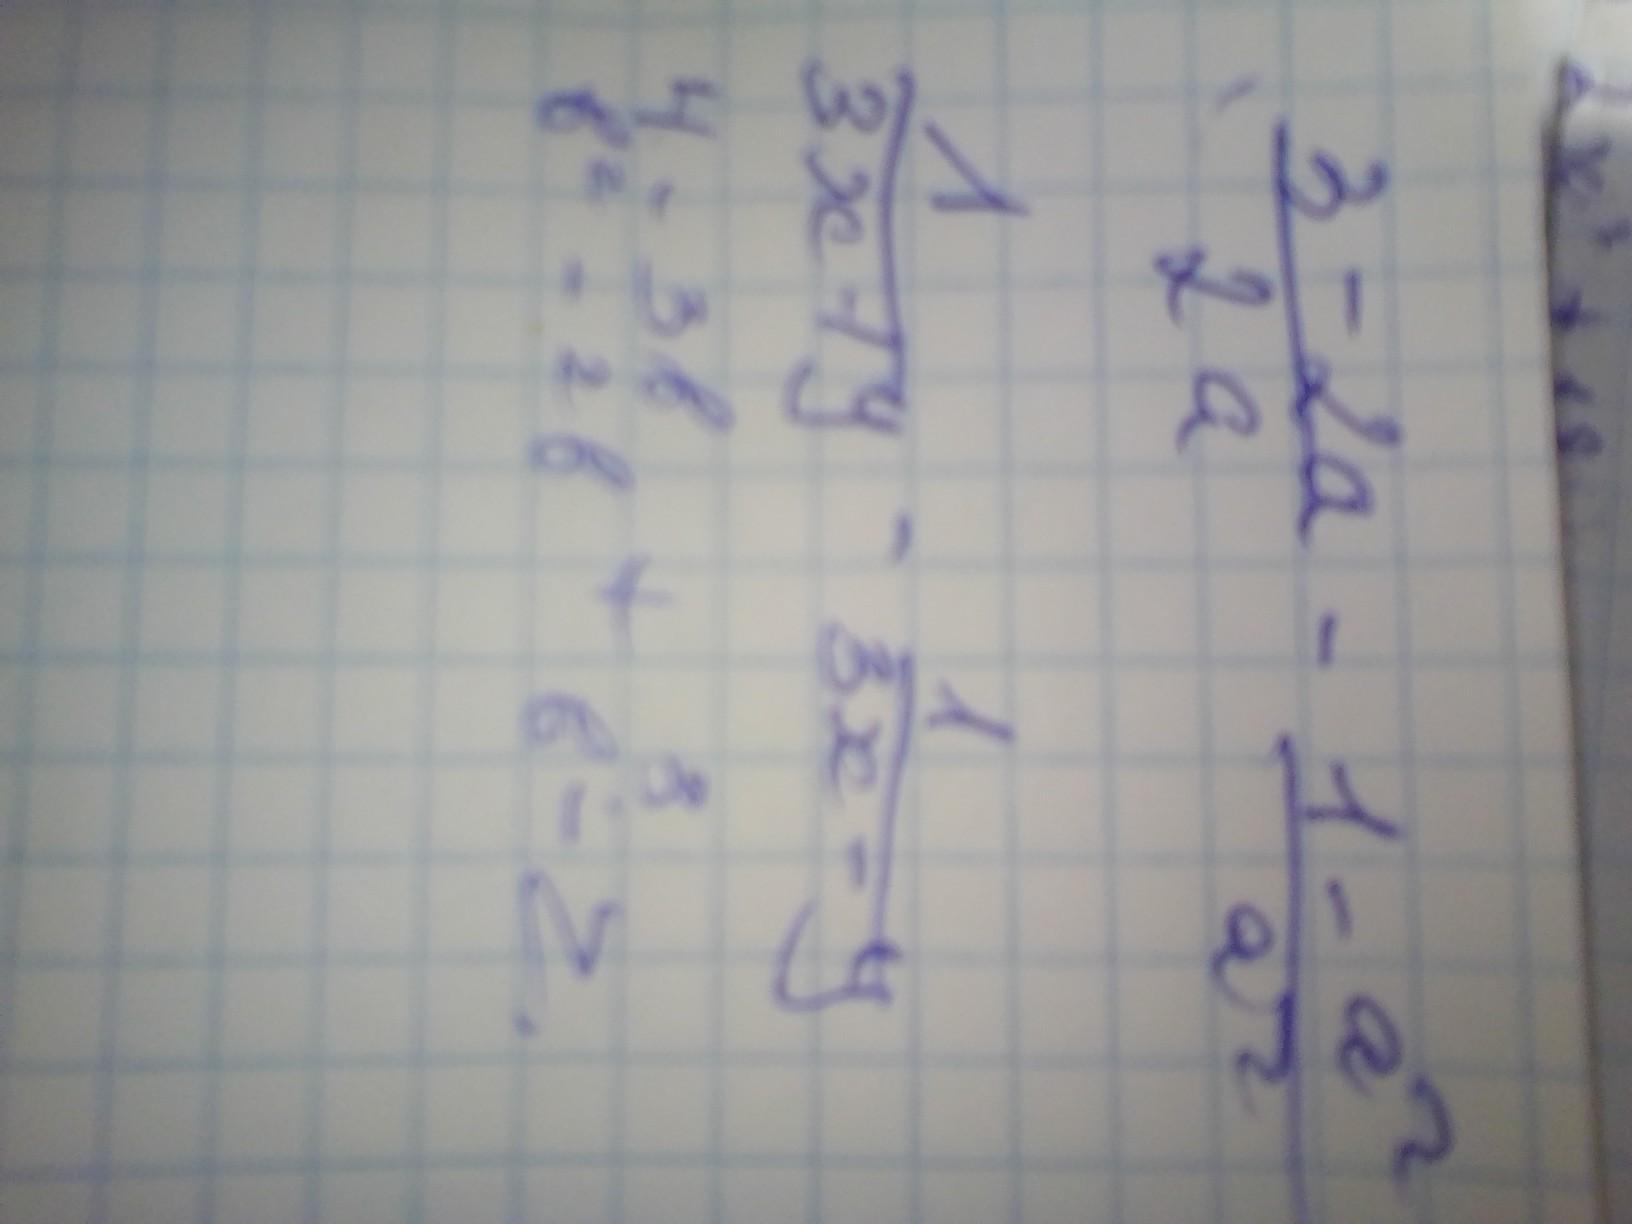 3 - 2a / 2a - 1 - a² / a²
1 / 3x + y - 1 / 3x - y
4 - 3b / b² - 2b + 3 / b - 2